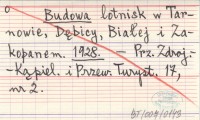 o
Budowa lotnisk w Tar-
nowie, Dębicy, Białej i Za-
kopanem. 1928. – Prz. Zdroj.-
-Kąpiel. i Przew. Turyst. 17,
nr 2.